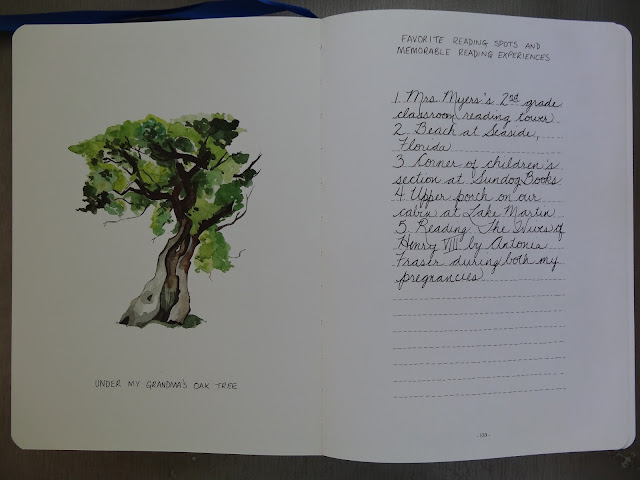 UNDER MY GRANDMA'S OAK TREE
FAVORITE READING SPOTS AND
MEMORABLE READING EXPERIENCES
1. Mrs. Myers's 2nd grade
classroom reading tower
2. Beach at Seaside,
Florida
3. Corner of children's
section at Sundog Books
4. Upper porch on our
cabin at Lake Martin
5. Reading The Wives of
Henry VIII by Antonia
Fraser during both my
pregnancies